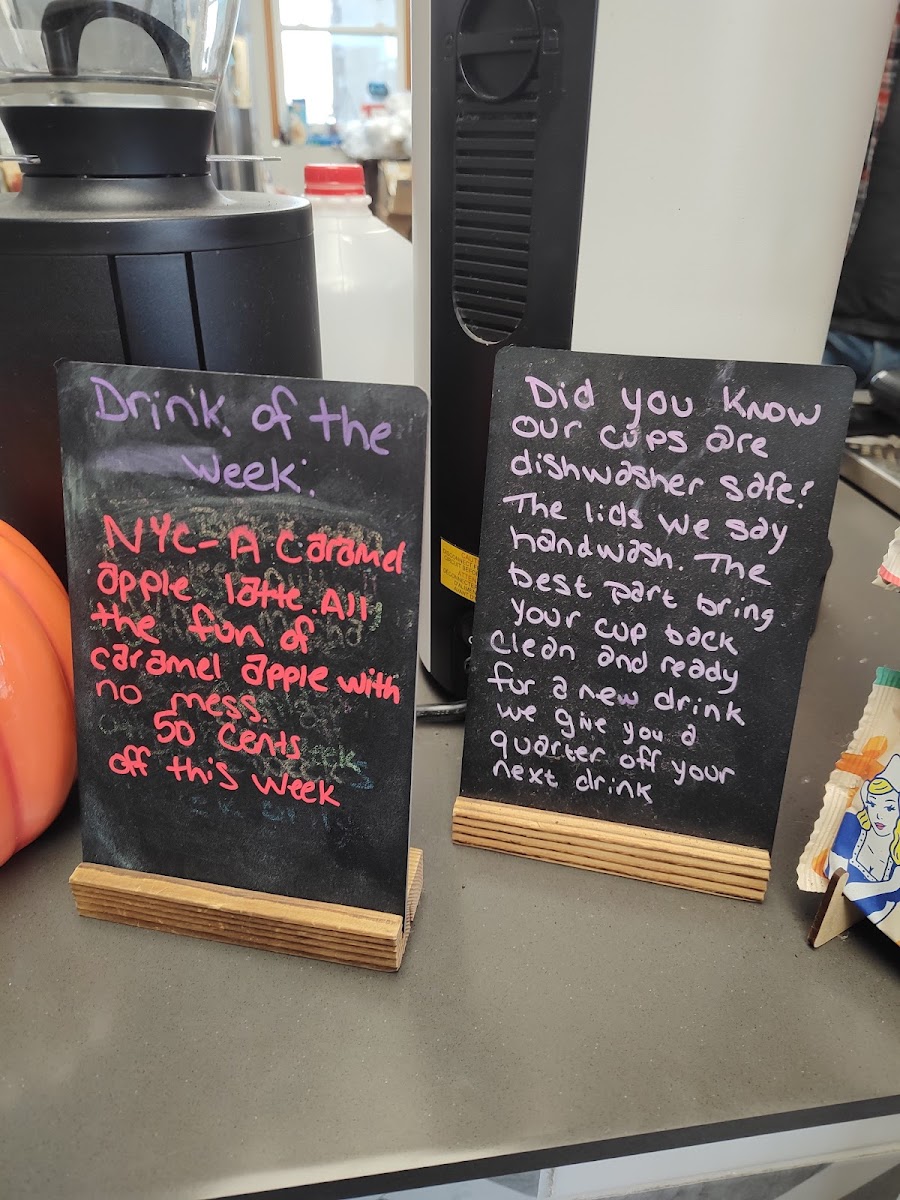 Drink of the
week:
NYC-A caramel
apple latte. All
the fun of
caramel apple with
no mess.
50 cents
off this week
Did you know
our cups are
dishwasher safe?
The lids we say
handwash. The
best part bring
your cup back
clean and ready
for a new drink
we give you a
quarter off your
next drink